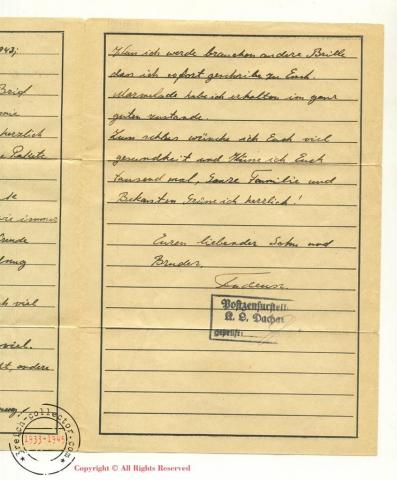 1943;
Brief
herzlich
Pakete
wie immer
viel
viel.
andere
Nun ich werde brauchen andere Brille
das ich sofort geschribe zu Euch.
Marmelade habe ich erhalten im ganz
guten zustande.
Zum schlus wünsche ich Euch viel
gesundheit und Küsse ich Euch
tausend mal, Ganze Familie und
Bekanten Grüse ich herzlich!
Euren liebender Sohn und
Bruder.
Tadeusz
Postzensurstelle
K. L. Dachau
geprüft:
3reich-collector.com
1933-1945
Copyright © All Rights Reserved